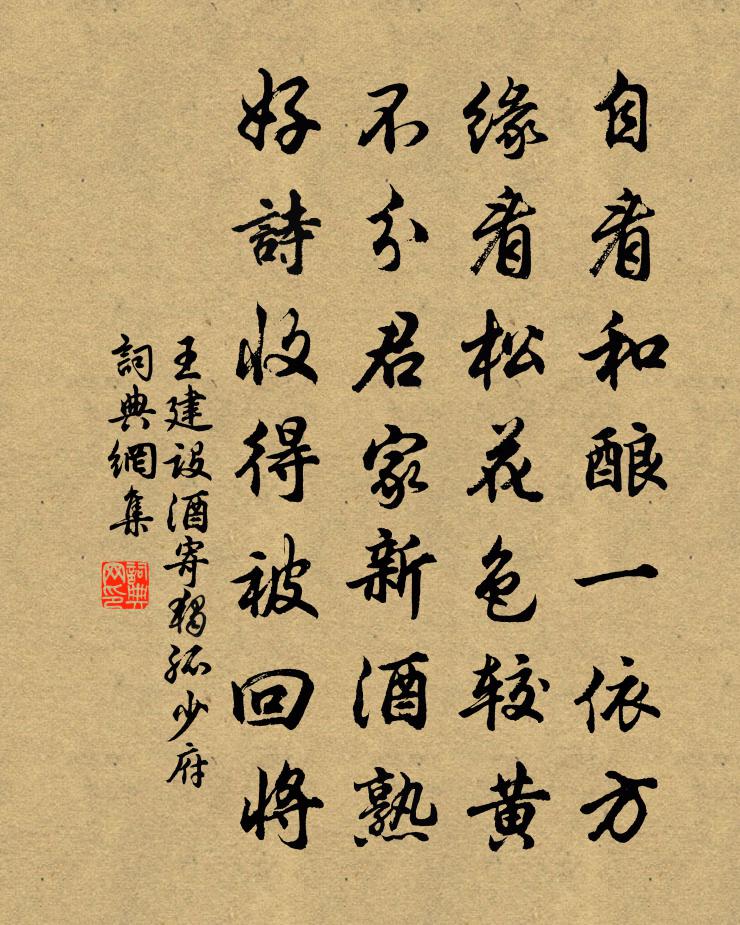 自看和酿一依方
缘看松花色较黄
不分君家新酒熟
好詩收得被回將
王建设酒寄獨孤少府
詞典網集
詞典网印